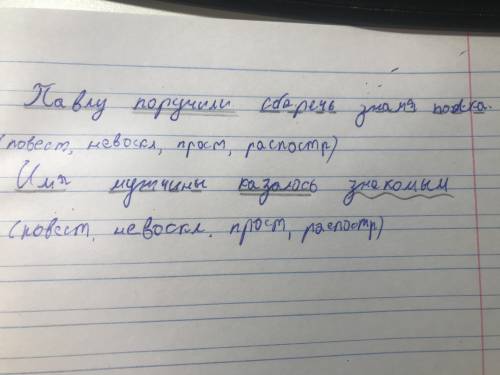 Павлу поручили сберечь знамя полка.
(повест, невоскл, прост, распостр)
Имя мужчины казалось знакомым
(повест, невоскл. прост, распостр)